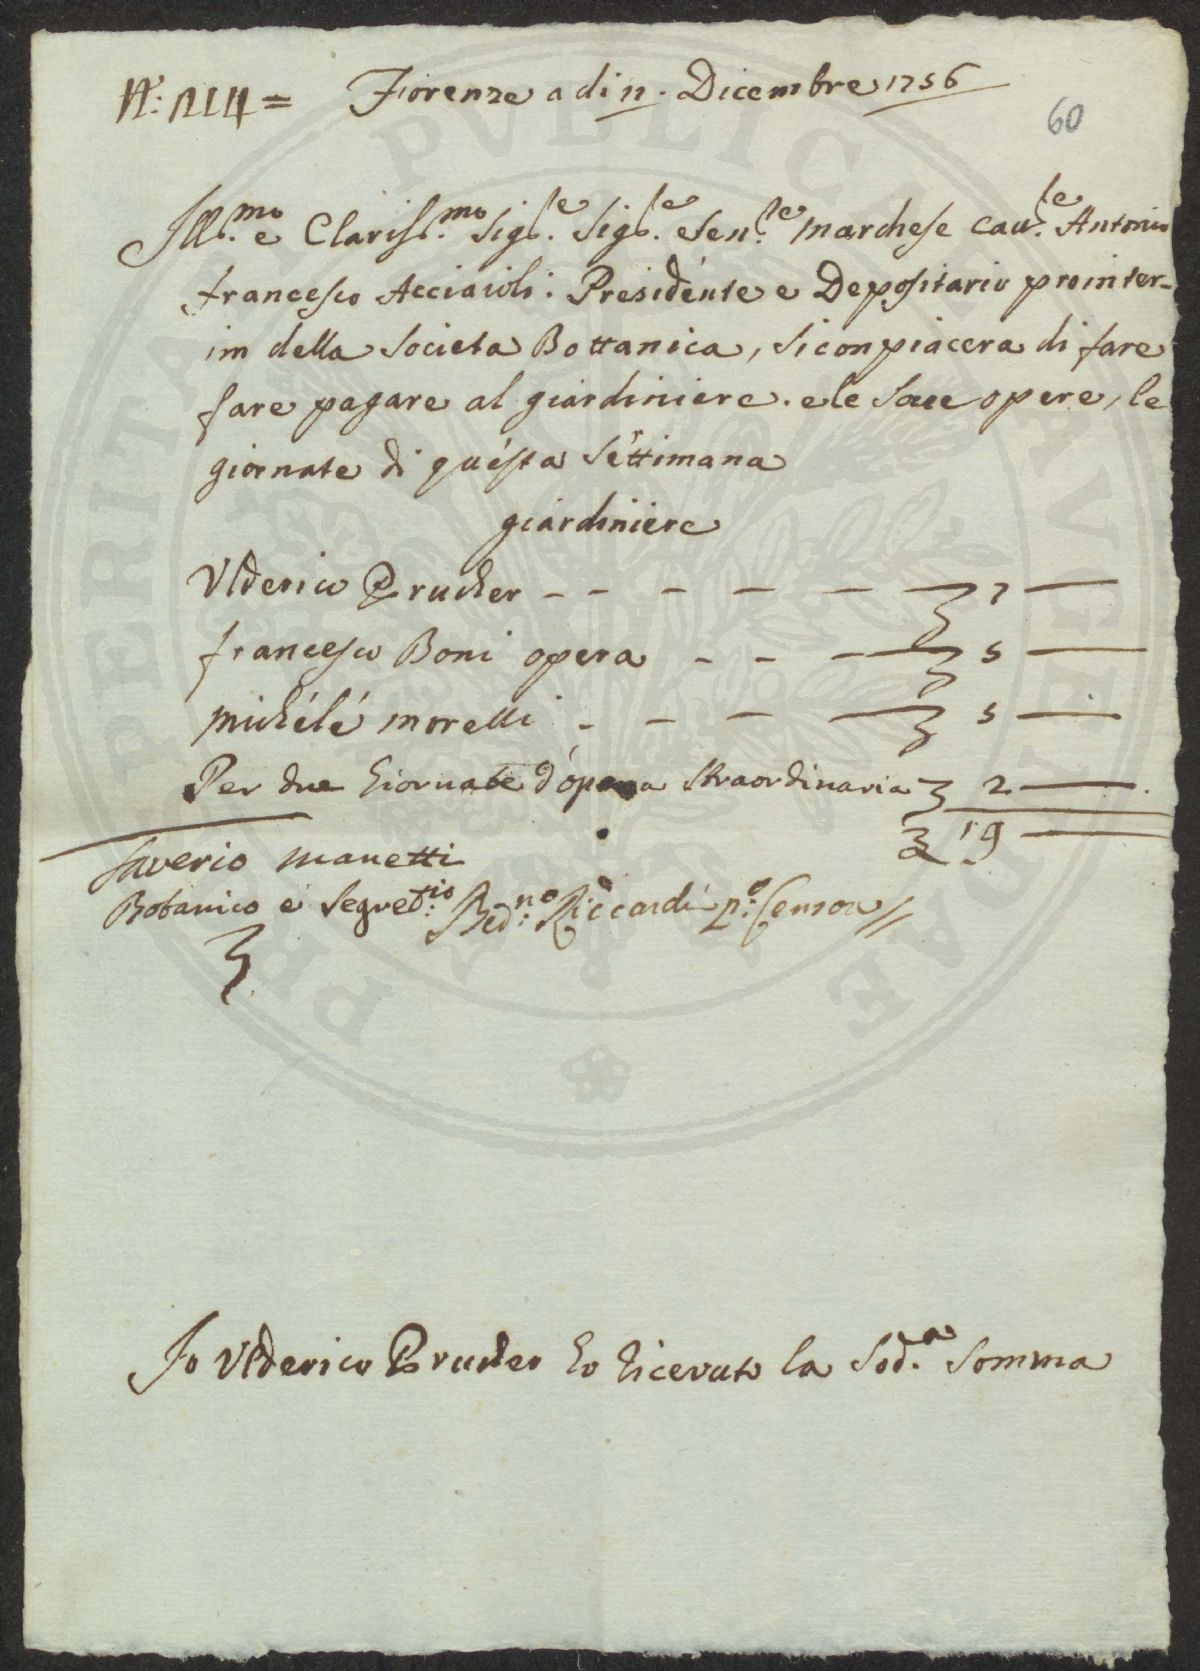 N.° 214 = Fiorenze a di 11. Dicembre 1756
60
Ill.mo e Claris.mo Sig.le Sig.le e Sen.le Marchese Cau.le Antonio
francesco Acciaioli. Presidénte e Depositario prointer-
im della Societa Bottanica, si conpiacera di fare
fare pagare al giardiniere. e le Soue opere, le
giornate di quésta Séttimana
giardiniere
Ulderico Prucker - - - - - 7 —
francesco Boni opera - - - 5 —
Michélé Morelli - - - - 5 —
Per due Giornate d'ópera straordinaria 2 —
19 —
Saverio Manetti
Botanico e Segret.io Bed.no Riccardi p.o Censore
Io Ulderico Prucker ho ricevuto la Sod.a Somma
PERITATI PVBLICAE